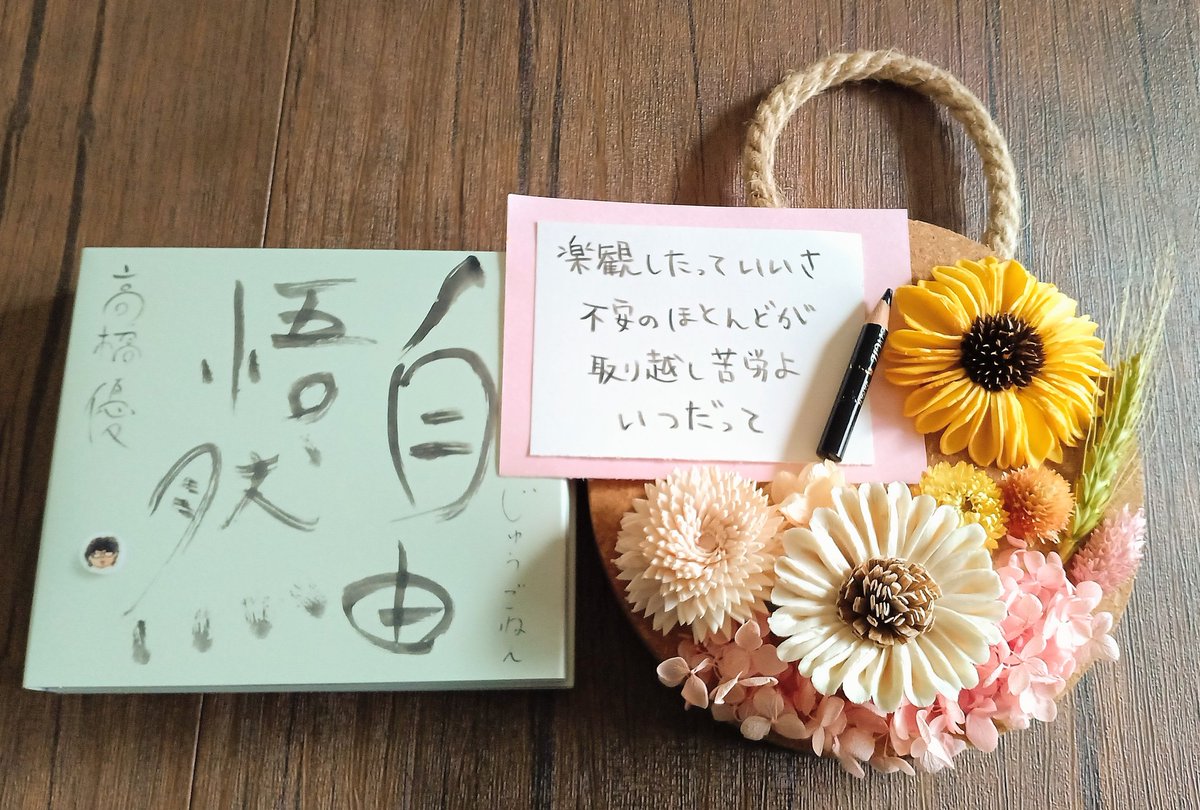 自由
じゅうごねん
悟然
高橋優
楽観したっていいさ
不安のほとんどが
取り越し苦労よ
いつだって